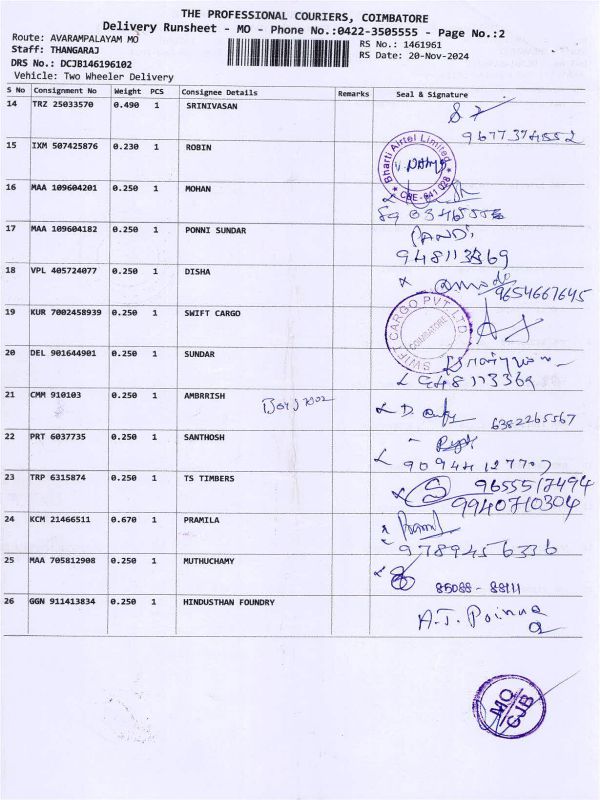 THE PROFESSIONAL COURIERS, COIMBATORE
Delivery Runsheet - MO - Phone No.:0422-3505555 - Page No.:2
Route: AVARAMPALAYAM MO
RS No.: 1461961
Staff: THANGARAJ
RS Date: 20-Nov-2024
DRS No.: DCJB146196102
Vehicle: Two Wheeler Delivery
S No Consignment No Weight PCS Consignee Details Remarks Seal & Signature
14 TRZ 25033570 0.490 1 SRINIVASAN
9677374552
15 IXM 507425876 0.230 1 ROBIN
Bharti Airtel Limited
CBE-641 028
16 MAA 109604201 0.250 1 MOHAN
17 MAA 109604182 0.250 1 PONNI SUNDAR
18 VPL 405724077 0.250 1 DISHA
9654667645
19 KUR 7002458939 0.250 1 SWIFT CARGO
SWIFT CARGO PVT. LTD
COIMBATORE
20 DEL 901644901 0.250 1 SUNDAR
948113369
21 CMM 910103 0.250 1 AMBRRISH
6382265567
22 PRT 6037735 0.250 1 SANTHOSH
9094412770
23 TRP 6315874 0.250 1 TS TIMBERS
9655517494
9940710304
24 KCM 21466511 0.670 1 PRAMILA
9789456336
25 MAA 705812908 0.250 1 MUTHUCHAMY
85088 - 88111
26 GGN 911413834 0.250 1 HINDUSTHAN FOUNDRY
A.T.
MO
CJB